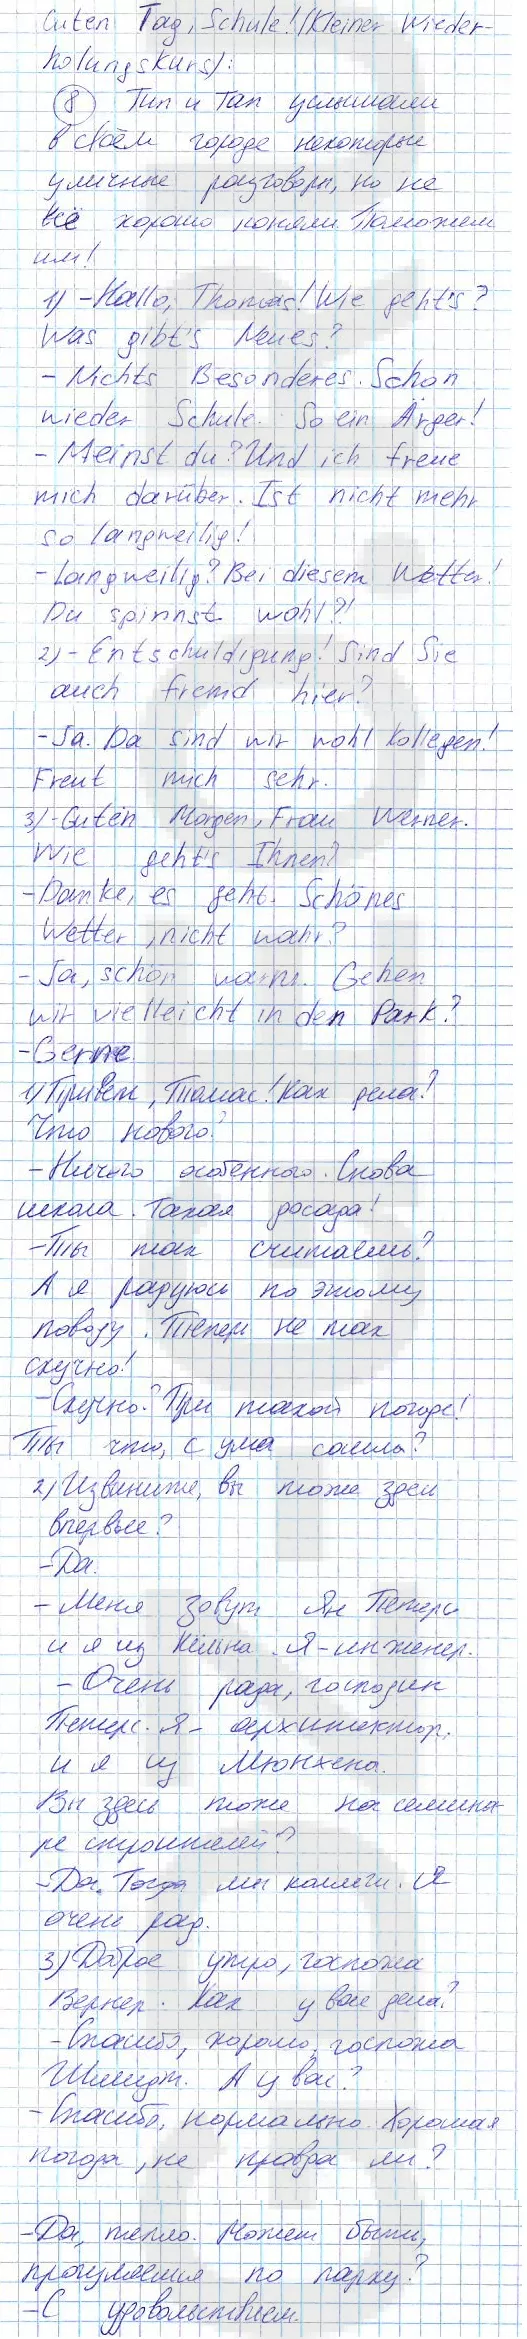 Guten Tag, Schule! (Kleiner Wieder-
holungskurs):
8 Тип и Тап услышали
в своём городе некоторые
уличные разговоры, но не
всё хорошо поняли. Поможем
им!
1) - Hallo, Thomas! Wie geht's?
Was gibt's Neues?
- Nichts Besonderes. Schon
wieder Schule. So ein Ärger!
- Meinst du? Und ich freue
mich darüber. Ist nicht mehr
so langweilig!
- Langweilig? Bei diesem Wetter!
Du spinnst wohl?!
2) - Entschuldigung! Sind Sie
auch fremd hier?
- Ja. Da sind wir wohl Kollegen!
Freut mich sehr.
3) - Guten Morgen, Frau Werner.
Wie geht's Ihnen?
- Danke, es geht. Schönes
Wetter, nicht wahr?
- Ja, schön warm. Gehen
wir vielleicht in den Park?
- Gerne
1) Привет, Томас! Как дела?
Что нового?
- Ничего особенного. Снова
школа. Такая досада!
- Ты так считаешь?
А я радуюсь по этому
поводу. Теперь не так
скучно!
- Скучно? При такой погоде!
Ты что, с ума сошла?
2) Извините, вы тоже здесь
впервые?
- Да.
- Меня зовут Ян Петерс
и я из Кёльна. Я - инженер.
- Очень рада, господин
Петерс. Я - архитектор,
и я из Мюнхена.
Вы здесь тоже на семина-
ре строителей?
- Да. Тогда мы коллеги. Я
очень рад.
3) Доброе утро, госпожа
Вернер. Как у вас дела?
- Спасибо, хорошо, госпожа
Шмидт. А у вас?
- Спасибо, нормально. Хорошая
погода, не правда ли?
- Да, тепло. Может быть,
прогуляемся по парку?
- С удовольствием.